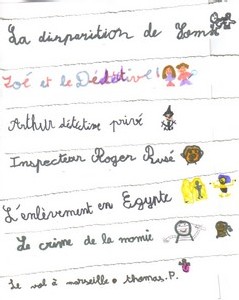 La disparition de Tom
Zoé et le Détective!
Arthur détective privé
Inspecteur Roger Rusé
L'enlèvement en Egypte
Le crime de la momie
Le vol à marseille. thomas.P.